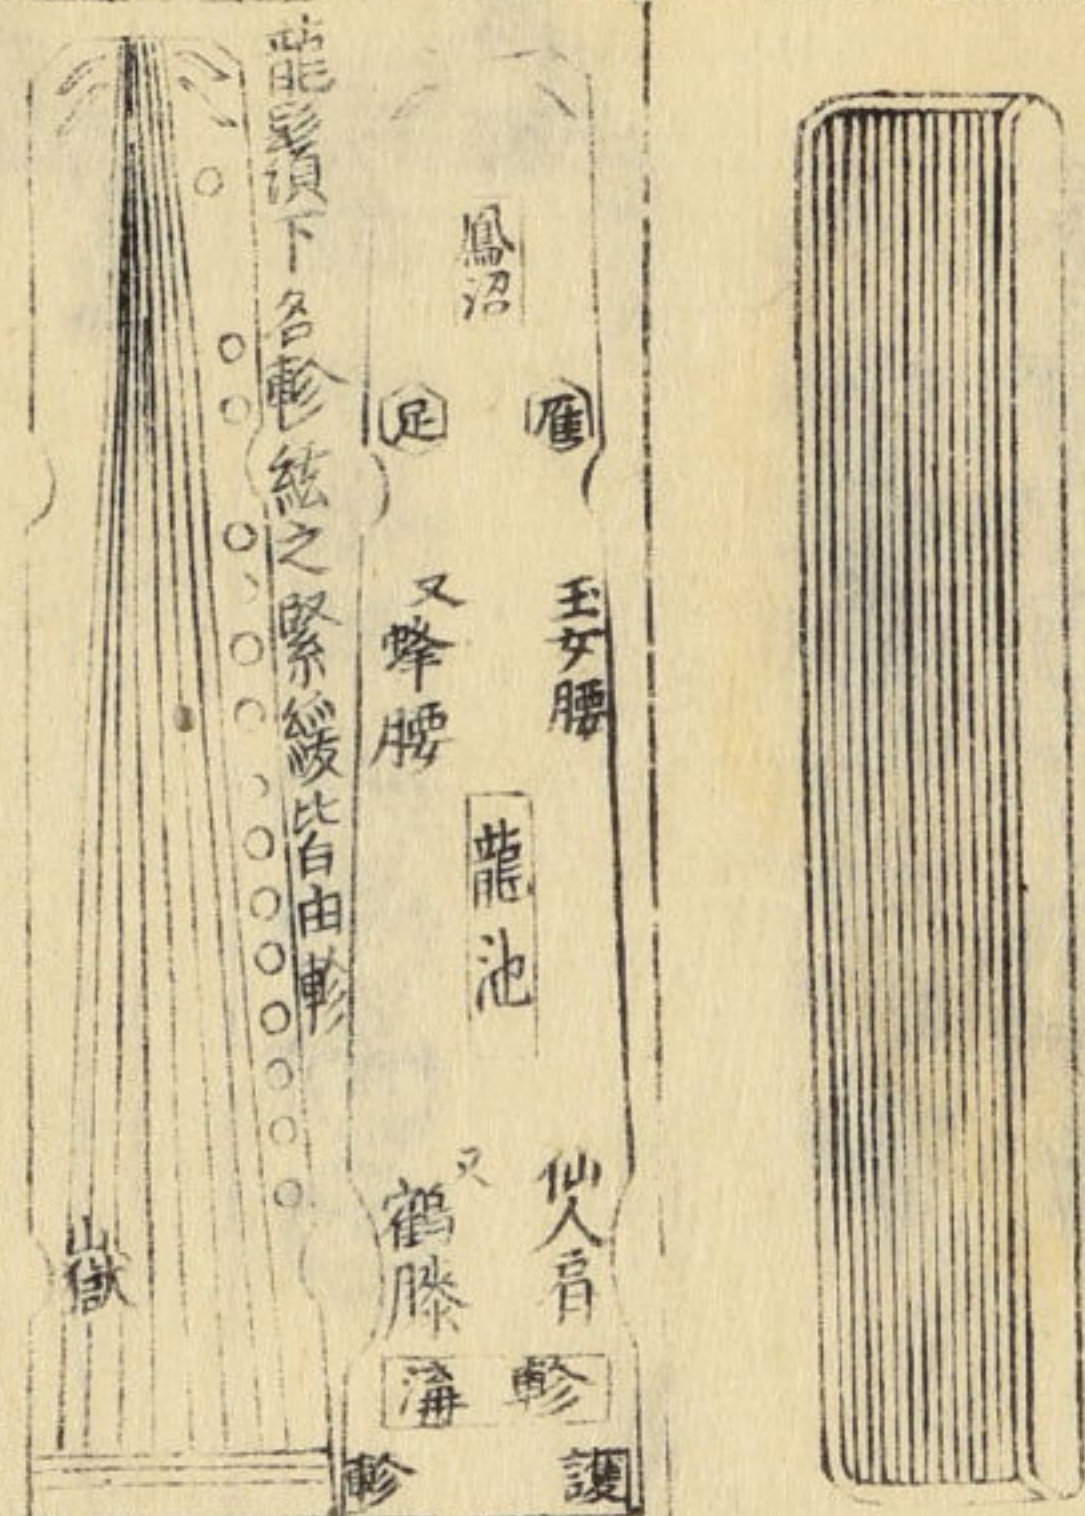 鳳沼
雁足
玉女腰
又蜂腰
龍池
仙人肩
又鶴膝
軫溝
護軫
龍鬚下各軫絃之緊緩皆由軫
嶽